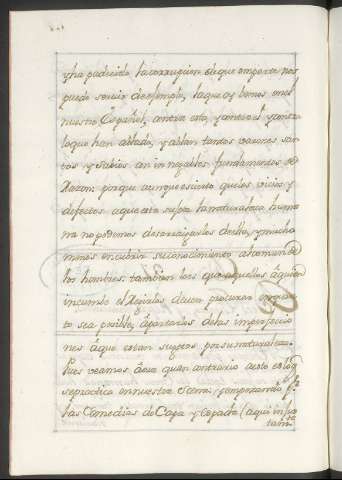 y ha padecido la corrupcion de que en parte nos
puede servir de exemplo, la que oy vemos en el
nuestro Español, contra esto, y contra
lo que han ablado, y ablan tantos varones san-
tos y sabios con innegables fundamentos de
Razon: porque aunque es cierto que los vicios y
defectos a que está sujeta la naturaleza huma
na no podemos desarraigarlos de ella, y mucho
menos encubrir su conocimiento a los mas de
los hombres: tambien lo es que aquellos á quien
incumbe el Regirlos deven procurar en quan-
to sea posible, apartarlos de las imperfeccio
nes á que estan sujetos por su naturaleza.
Pues veamos ahora quan contrario a esto es lo q.
se practica en nuestra Scena; y empezando p.r
las Comedias de Capa y Espada (a qui inpo
tam.te